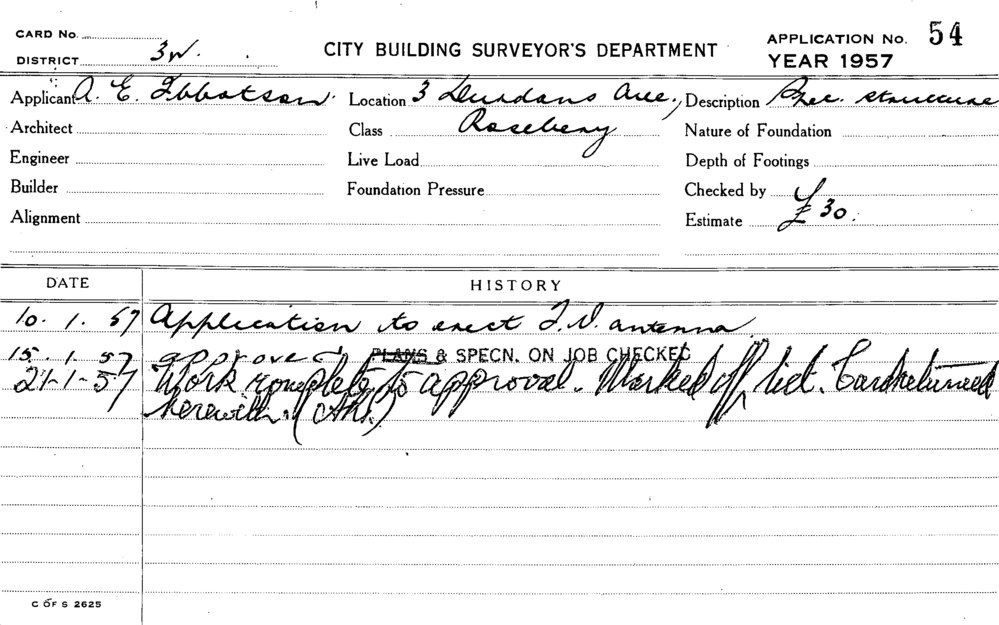 CARD No.
DISTRICT 3W.
CITY BUILDING SURVEYOR'S DEPARTMENT
APPLICATION No. 54
YEAR 1957
Applicant A. E. Ibbotson. Location 3 Durdans Ave., Description Rec. structure
Architect Class Rosebery Nature of Foundation
Engineer Live Load Depth of Footings
Builder Foundation Pressure Checked by
Alignment Estimate £30.
DATE HISTORY
10. 1. 57 Application to erect T.V. antenna
15. 1. 57 approved PLANS & SPECN. ON JOB CHECKED
24-1-57 Work complete to approval. Marked off list. Card returned
herewith.
C OF S 2625